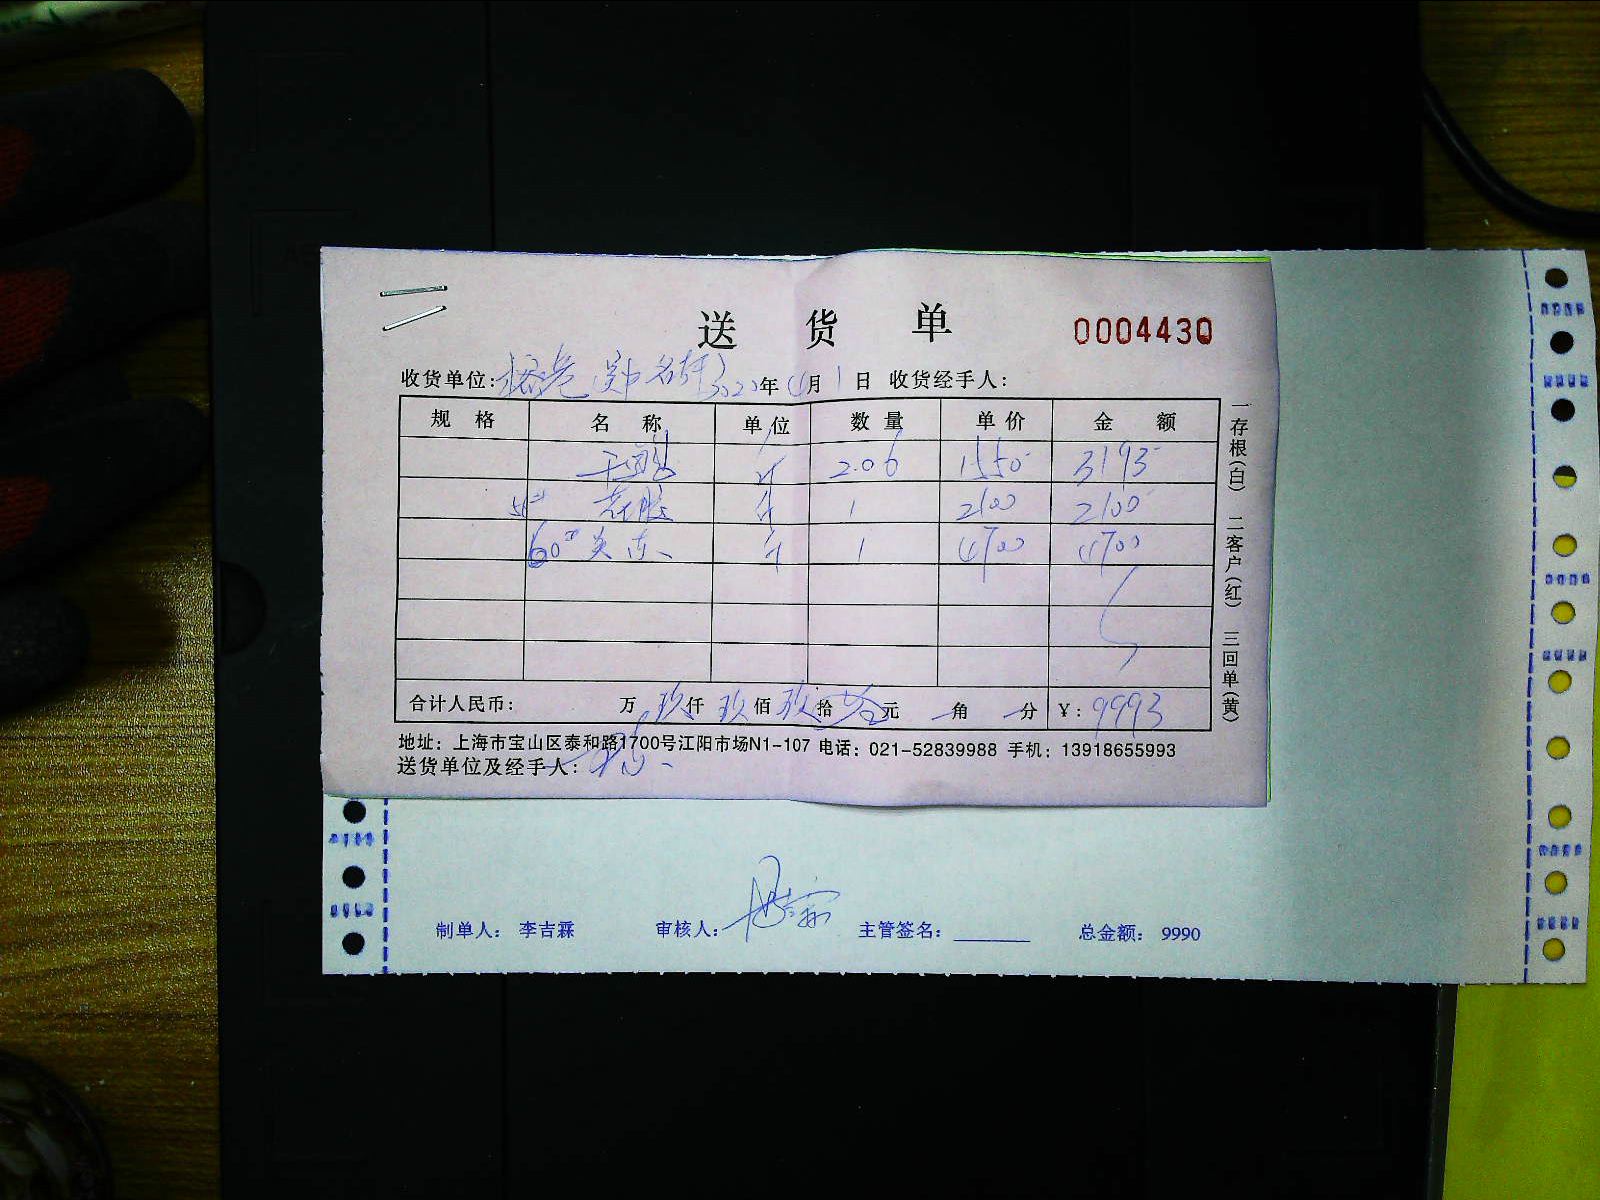 送 货 单 0004430
收货单位: 2020年4月1日 收货经手人:
规 格 名 称 单位 数 量 单价 金 额
斤 2.06 1550 3193
5# 花胶 斤 1 2100 2100
60# 斤 1 4700 4700
合计人民币: 万玖仟玖佰玖拾叁元 角 分 ¥: 9993
地址: 上海市宝山区泰和路1700号江阳市场N1-107 电话: 021-52839988 手机: 13918655993
送货单位及经手人:
一存根(白) 二客户(红) 三回单(黄)
制单人: 李吉霖 审核人: 主管签名: ______ 总金额: 9990